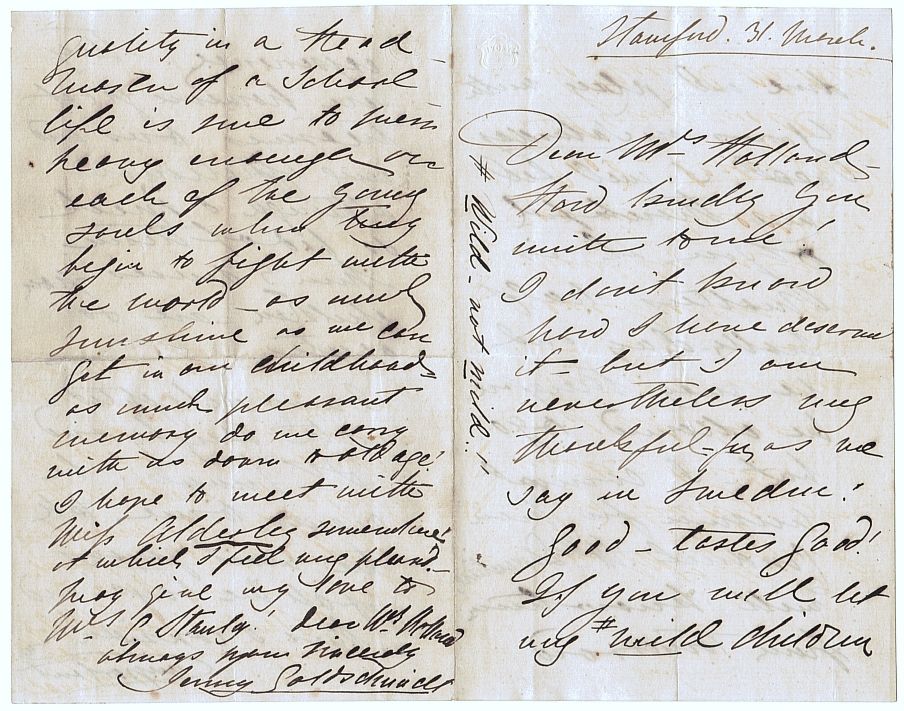 Stamford. 31. March.
Dear Mrs Holland –
How kindly you
write to me!
I don't know
how I have deserved
it – but I am
nevertheless very
thankful – for, as we
say in Sweden:
Good – tastes Good!
If you will let
my # wild children
# Wild – not mild!!
quality in a Head
master of a School
life is sure to press
heavy enough on
each of the young
souls when they
begin to fight with
the world – as much
sunshine as we can
get in our childhood –
as much pleasant
memory do we carry
with us down to old age!
I hope to meet with
Miss Alderley somewhere!
at which I feel very pleased –
may give my love to
Mrs C Stanley! Dear Mrs Holland
always yours sincerely
Jenny Goldschmidt